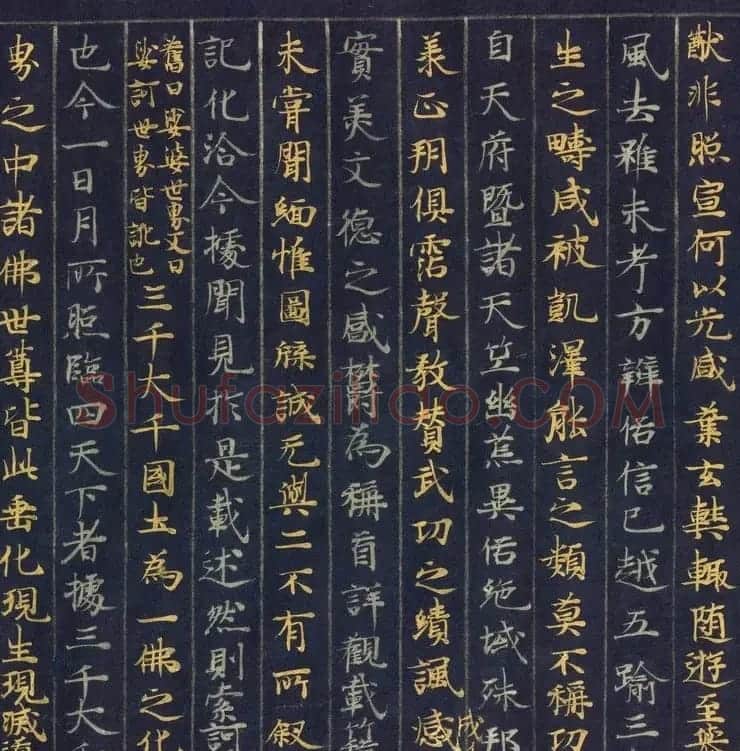 猷非照宣何以光咸葉玄奘輙随遊至
風土雖未考方辨俗信已越五踰三
生之疇咸被凱澤能言之類莫不稱功
自天府暨諸天竺幽荒異俗絶域殊邦
承正朔俱霑聲教賛武功之績諷感
成
實美文德之盛欝為稱首詳觀載籍
未甞聞緬惟圖牒誠无與二不有所叙
記化洽今據聞見於是載述然則索訶
舊曰娑婆世界又曰
娑訶世界皆訛也
三千大千國土為一佛之化
也今一日月所照臨四天下者據三千大千
界之中諸佛世尊皆此垂化現生現滅
Shufaziliao.COM